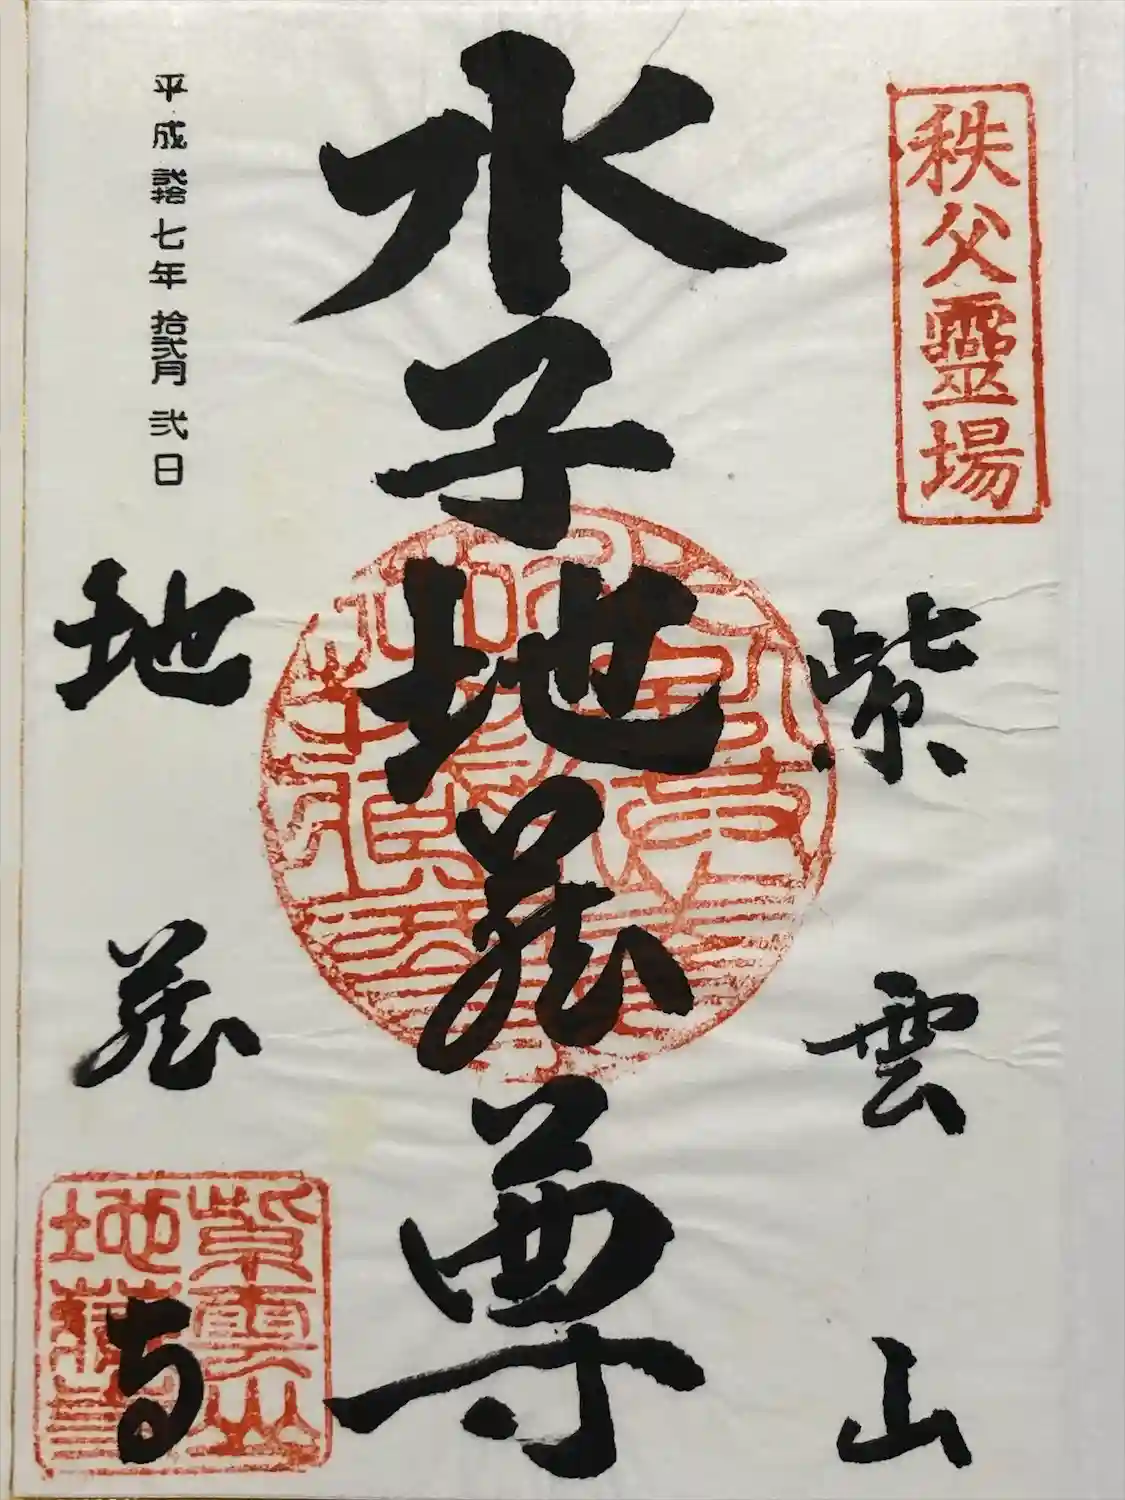 秩父靈場
紫雲山
水子地蔵尊
平成弐拾七年拾弐月弐日
地蔵寺
紫雲山
地蔵寺